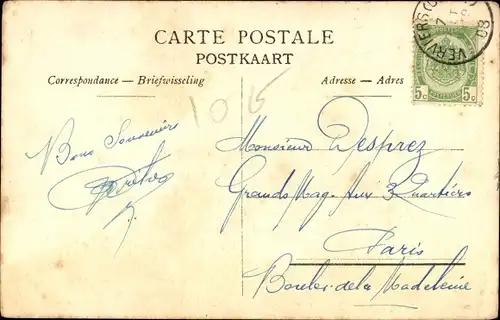 CARTE POSTALE
POSTKAART
Correspondance — Briefwisseling
Adresse — Adres
VERVIERS
08
5c 5c
10 G
Bons Souvenirs
Monsieur Desprez
Grands Mag. Aux 3 Quartiers
Paris
Boulev. de la Madeleine